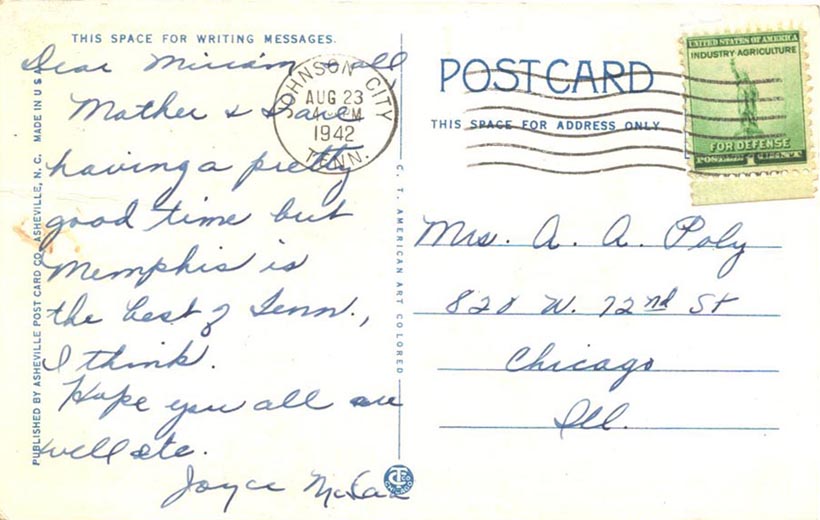 THIS SPACE FOR WRITING MESSAGES.
Dear Miriam & all
Mother & I are
having a pretty
good time but
Memphis is
the best of Tenn.,
I think.
Hope you all are
well etc.
Joyce
PUBLISHED BY ASHEVILLE POST CARD CO., ASHEVILLE, N. C. MADE IN U S A
JOHNSON CITY
AUG 23
PM
1942
TENN.
C. T. AMERICAN ART COLORED
CHICAGO
POST CARD
THIS SPACE FOR ADDRESS ONLY
UNITED STATES OF AMERICA
INDUSTRY AGRICULTURE
FOR DEFENSE
POSTAGE 1 CENT
Mrs. A. A. Poly
W. 72nd St
Chicago
Ill.